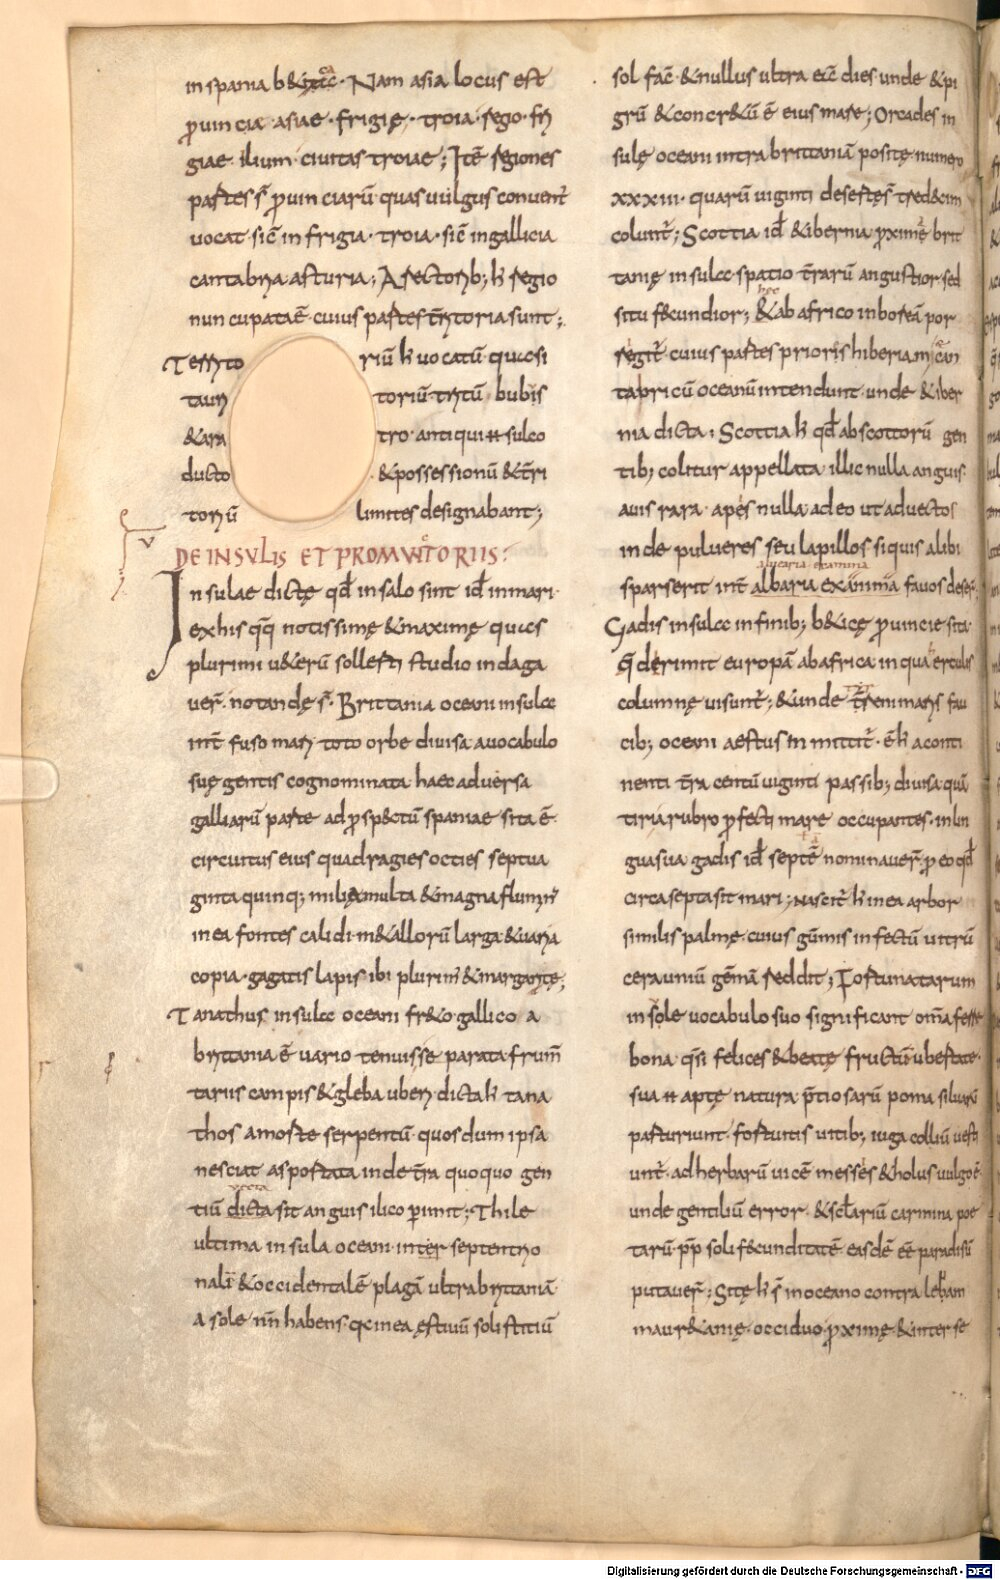 in spania b&ica. Nam asia locus est
ꝓuincia asiae. frigię. troia. regio. fri
giae. ilium. ciuitas troiae; Itē regiones
partes s̄ ꝓuinciarū quas uulgus conuent
uocat. sic̄ in frigia. troia. sic̄ in gallicia
cantabria. asturia; A rectorib; h̄ regio
nuncupata ē. cuius partes territoria sunt;
Territo riū h̄ uocatū quasi
tauri toriū. tritū bubus
&ara tro. antiqui n̄ sulco
ducto & possessionū & terri
toriū limites designabant;
V
DE INSVLIS ET PROMVNTORIIS:
Insulae dictę qđ in salo sint id̄ in mari
ex his qq̄ notissimę & maximę quas
plurimi u&erū sollerti studio indaga
uer̄. notandę s̄. Brittania oceani insula
int̄fuso mari toto orbe diuisa a uocabulo
suę gentis cognominata haec aduersa
galliarū parte ad ꝓsp&ctū spaniae sita ē.
circuitus eius quadragies octies septua
ginta quinq; milia multa & magna flumin̄
in ea fontes calidi. m&allorū larga & uaria
copia. gagatis lapis ibi plurim̄ & margaritę;
Tanathus insula oceani fr&o gallico a
brittania ē uario tenui sepparata frum̄
tariis campis & gleba uberi. dicta h̄ tana
thos a morte serpentū. quos dum ipsa
nesciat asportata inde terra quoquo gen
uecta
tiū dicta sit anguis ilico perimit; Thile
ultima insula oceani inter septentrio
nalē & occidentalē plagā ultra brittaniā
a sole nn̄ habens. qa in ea ęstiuū solistitiū
sol fac̄. & nullus ultra eū dies unde & pi
grū & concr&ū ē eius mare; Orcades in
sulę oceani intra brittaniā positę numero
xxxiii. quarū uiginti desertęs. tred&cim
colunt̄; Scottia id̄ & ibernia ꝓximę brit
tanię insula spatio terrarū angustior sed
hęc
situ f&cundior; & ab africo in boreā por
rigit̄. cuius partes priores hiberiam & can
tabricū oceanū intendunt. unde & iber
nia dicta; Scottia h̄ qđ ab scottorū gen
tib; colitur appellata. illic nulla anguis.
auis rara. apes nulla. adeo ut aduectos
inde pulueres seu lapillos si quis alibi
aluearia examina
sparserit int̄ albaria examina fauos deser
Gadis insula in finib; b&icę ꝓuincię sita.
q̄ dirimit europā ab africa in qua erculis
columnę uisunt̄; & unde terreni maris fau
cib; oceani aestus inmittit̄. ē h̄ a conti
nenti terra centū uiginti passib; diuisa quā
tirii a rubro ꝓfecti mare occupantes. in lin
gua sua gadis id̄ septē nominauer̄. ꝓ eo qđ
circa septa sit mari; nascit̄ h̄ in ea arbor
similis palmę. cuius gūmis infectū uitrū
ceraunium gēmā reddit; Fortunatarum
insole uocabulo suo significant om̄a ferre
bona. qsi felices & beatę fructū ubertate.
sua n̄ aptę natura p̄tiosarū poma siluarū
parturiunt. fortuitis uitib; iuga colliū uesti
unt̄. ad herbarū uicē messes & holus uulgo ē.
unde gentiliū error. & sc̄lariū carmina poe
tarū pp̄ soli f&cunditatē easdē eē paradisū
putauer̄; Sitę h̄ s̄ in oceano contra lebam
maur&anię. occiduo ꝓximę & inter se
Digitalisierung gefördert durch die Deutsche Forschungsgemeinschaft - DFG